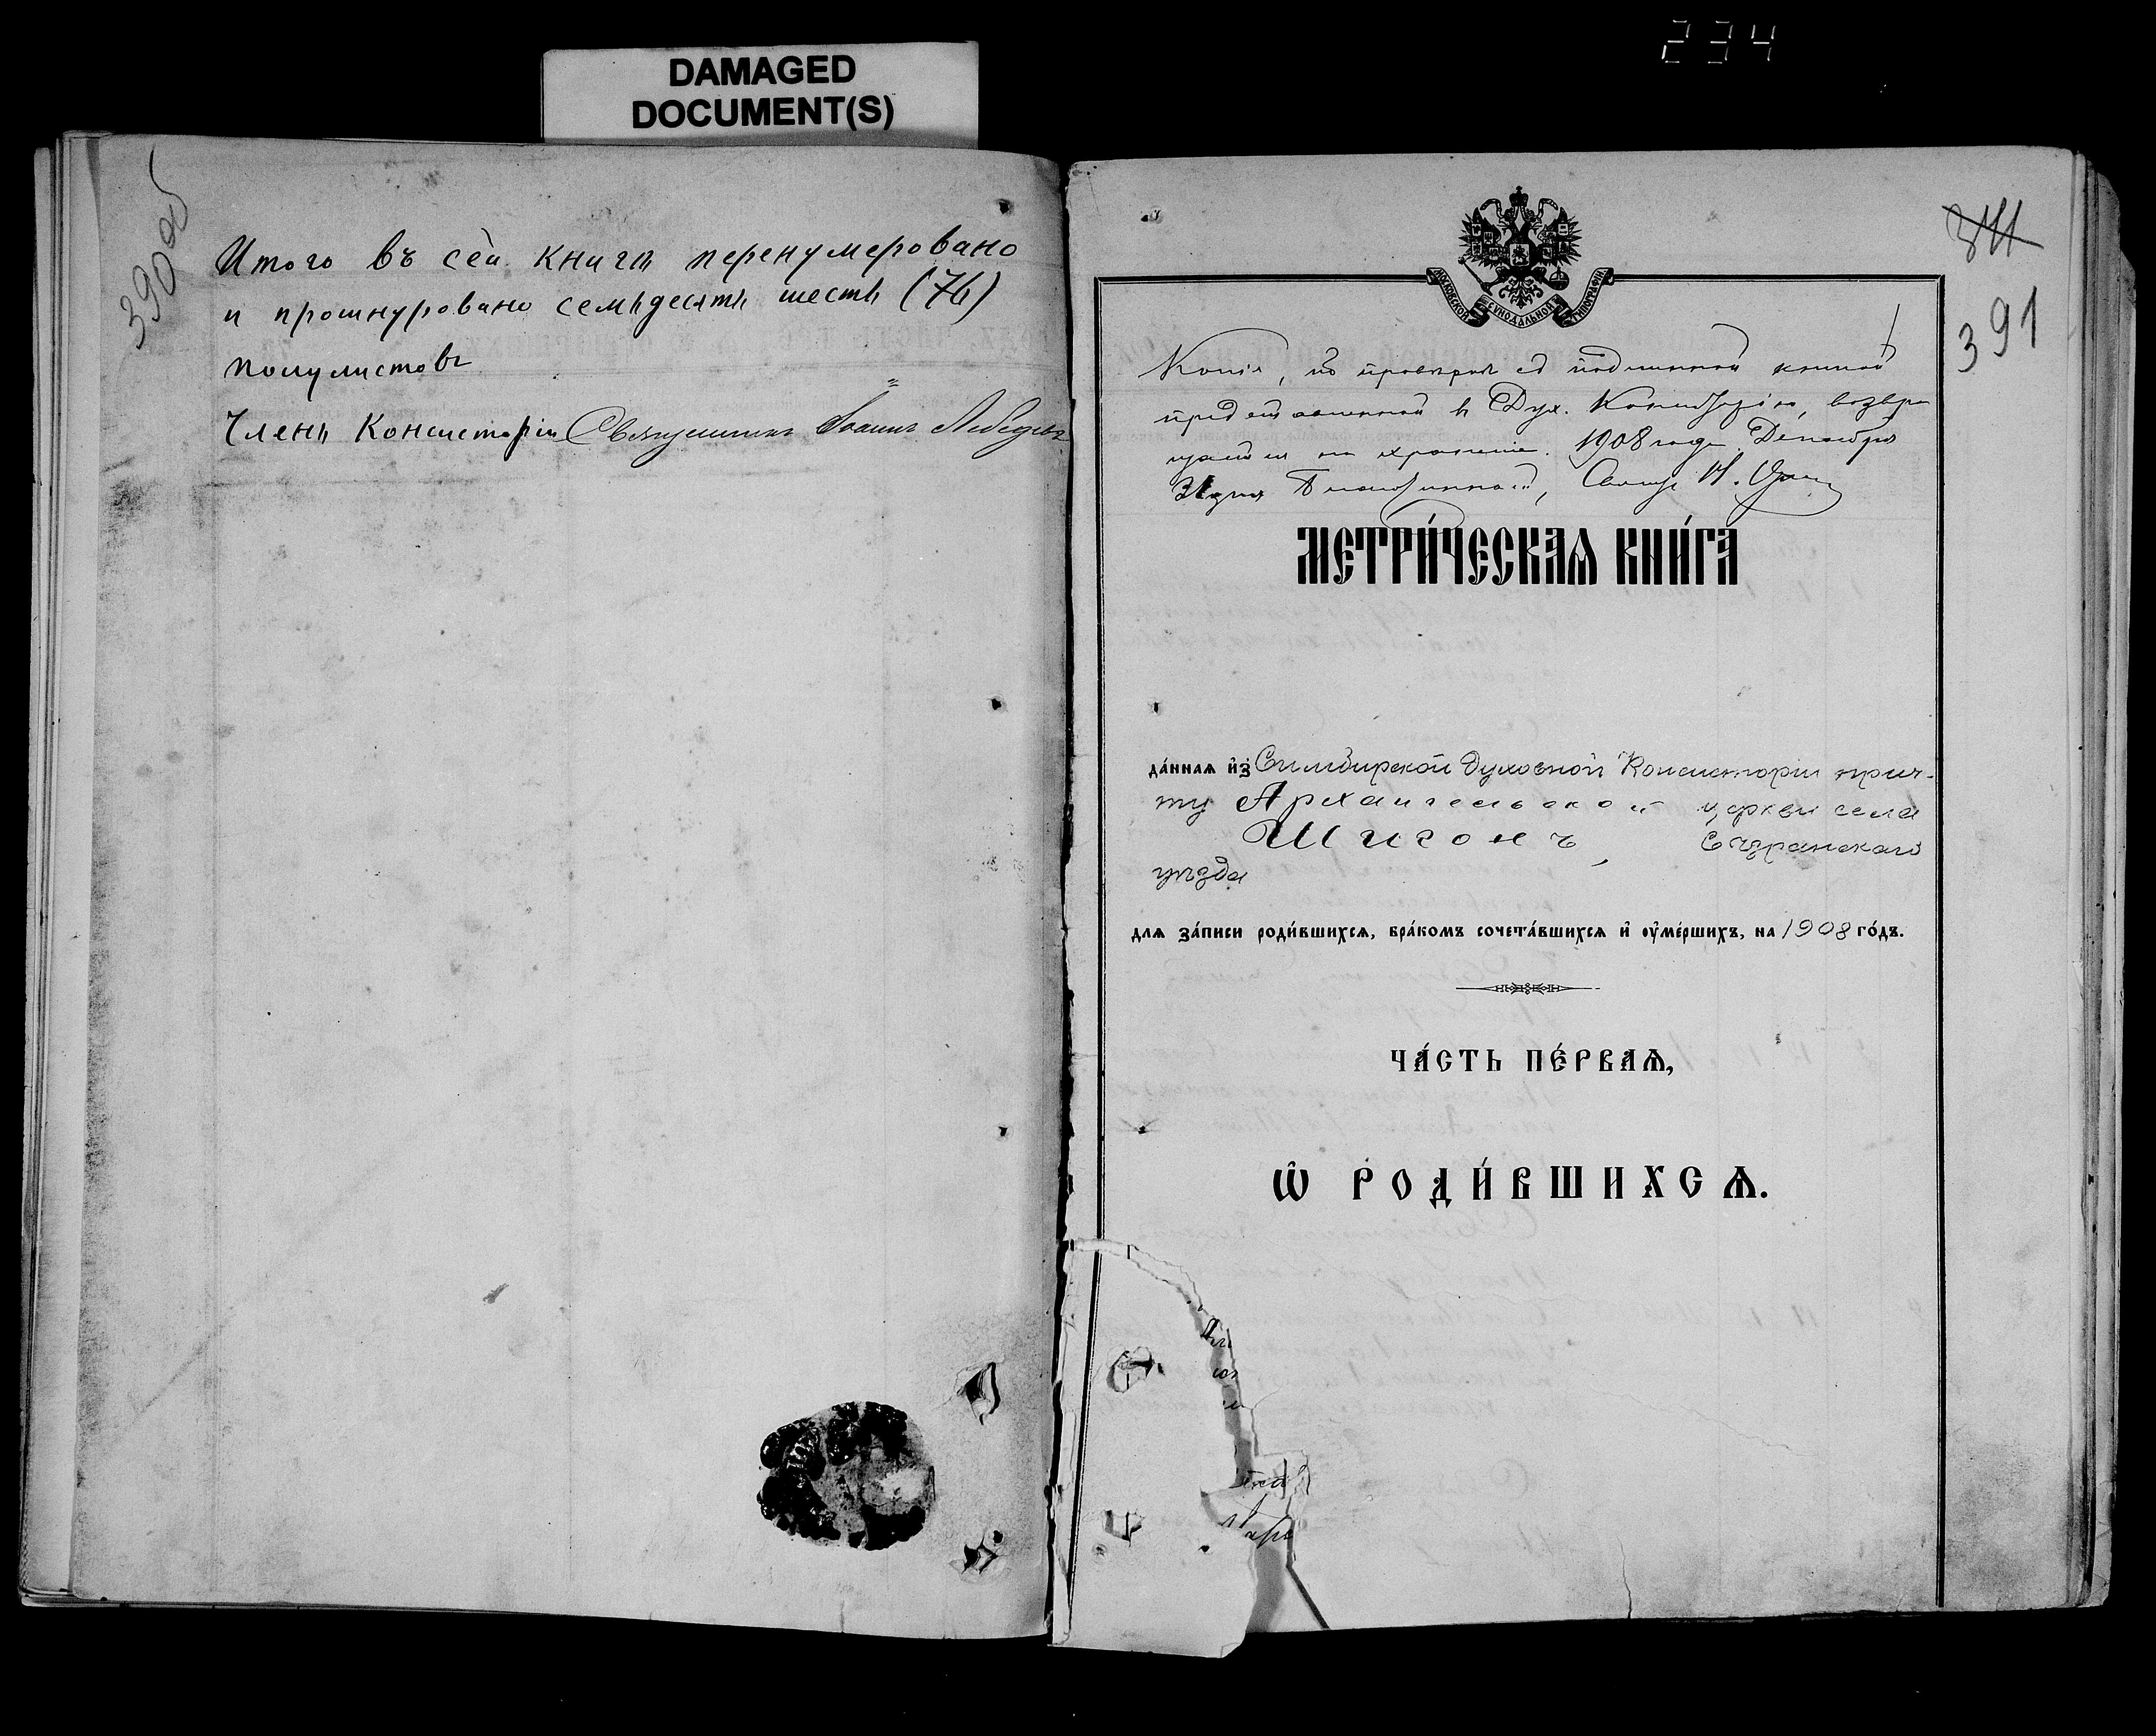 DAMAGED
DOCUMENT(S)
234
390 об
Итого въ сей книгѣ перенумеровано
и прошнуровано семьдесятъ шесть (76)
полулистовъ
Членъ Консисторіи Священникъ Іоаннъ Лебедевъ
МОСКОВСКОЙ СѴНОДАЛЬНОЙ ТИПОГРАФІИ
391
Копія, по провѣркѣ съ подлинной книгой
представленной в Дух. Консисторію, возвра
щается на храненіе. 1908 года Декабря
31 дня Благочинный, Свящ. И.
МЕТРИ́ЧЕСКАѦ КНИ́ГА
да́ннаѧ и҆з̾ Симбирской Духовной Консисторіи прич-
ту Архангельской церкви села
Шигонъ, Сызранскаго
уѣзда
длѧ за́писи роди́вшихсѧ, бра́комъ сочета́вшихсѧ и҆ ᲂу҆ме́ршихъ, на 1908 го́дъ.
ЧА́СТЬ ПЕ́РВАѦ,
Ѡ҆ РОДИ́ВШИХСѦ.